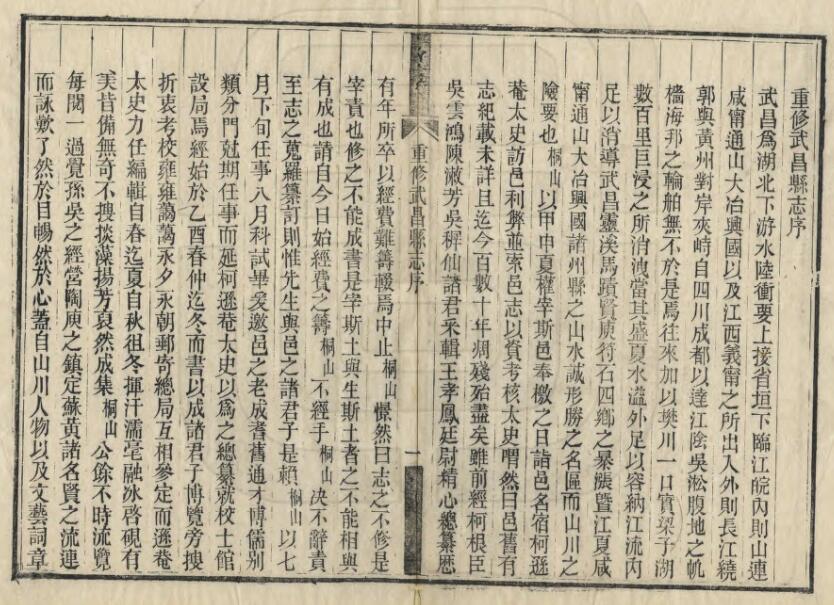 重修武昌縣志序
武昌爲湖北下游水陸衝要上接省垣下臨江皖內則山連
咸甯通山大冶興國以及江西義甯之所出入外則長江繞
郭與黃州對岸夾峙自四川成都以達江陰吳淞腹地之帆
檣海邦之輪舶無不於是焉往來加以樊川一口實梁子湖
數百里巨浸之所消洩當其盛夏水溢外足以容納江流內
足以消導武昌靈溪馬蹟賢庾符石四鄉之暴漲暨江夏咸
甯通山大冶興國諸州縣之山水誠形勝之名區而山川之
險要也桐山以甲申夏權宰斯邑奉檄之日詣邑名宿柯遜
菴太史訪邑利弊並索邑志以資考核太史喟然曰邑舊有
志紀載未詳且迄今百數十年凋殘殆盡矣雖前經柯根臣
吳雲鴻陳漱芳吳穉仙諸君采輯王孝鳳廷尉精心總纂歷
重修武昌縣志序
一
有年所卒以經費難籌輟焉中止桐山憬然曰志之不修是
宰責也修之不能成書是宰斯土與生斯土者之不能相與
有成也請自今日始經費之籌桐山不經手桐山決不辭責
至志之蒐羅纂訂則惟先生與邑之諸君子是賴桐山以七
月下旬任事八月科試畢爰邀邑之老成耆舊通才博儒別
類分門尅期任事而延柯遜菴太史以爲之總纂就校士館
設局焉經始於乙酉春仲迄冬而書以成諸君子博覽旁搜
折衷考校雍雍藹藹永夕永朝郵寄總局互相參定而遜菴
太史力任編輯自春迄夏自秋徂冬揮汗濡毫融冰啓硯有
美皆備無奇不搜掞藻揚芳裒然成集桐山公餘不時流覽
每閱一過覺孫吳之經營陶庾之鎮定蘇黃諸名賢之流連
而詠歎了然於目暢然於心蓋自山川人物以及文藝詞章